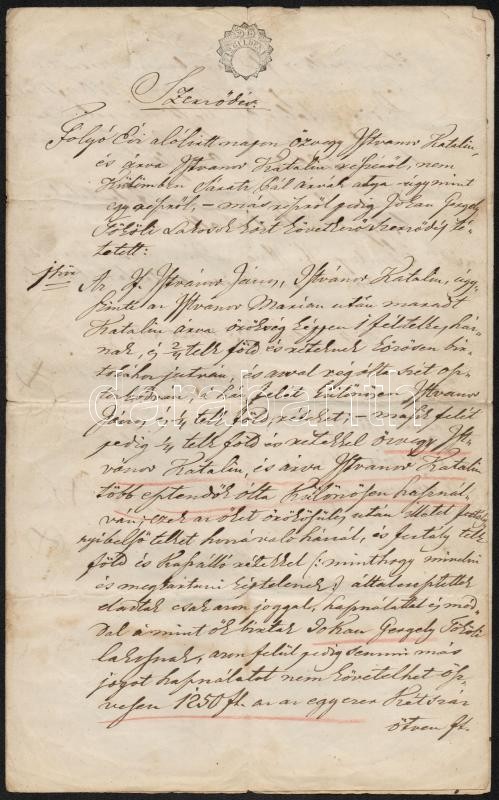 Szerződés.
Folyó Évi alólirt napon özvegy Istvánov Katalin,
és árva Istvánov Katalin részéről, nem
különben Sarath Pál árvák atya úgymint
egyrészről, – más részről pedig Jokan Gergely
Tököli Lakosok közt következő szerződés té-
tetett:
1ször Az If. Istvánov János, Istvánov Katalin, úgy-
szinte az Istvánov Marian után maradt
Katalin árva örökség képpen 1 féltelkes, há-
znak, és 2/4 telk föld és réteknek közösön bir-
tokához jutván, és avval rég ólta két
a ház felét különösen Istvánov
János, 1/4 telk föld, réteket, – másik felét
pedig 1/4 telk föld és rétekkel özvegy Ist-
vánov Katalin, és árva Istvánov Katalin
több esztendők ólta különösen használ-
ván, ezek az őket örökösülés után illető
honá való házát, és fertály telk
föld és kaszálló rétekkel (: minthogy mivelni
és megtartani képtelenek :) általengedtek
eladtak csak azon joggal, használattal és mód-
dal a mint ők birták Jokan Gergely Tököli
lakosnak, azon felül pedig semmi más
jogot használatot nem követelhet ösz-
vesen 1250 ft. az az egy ezer Kétszáz
ötven ft.
darabanth